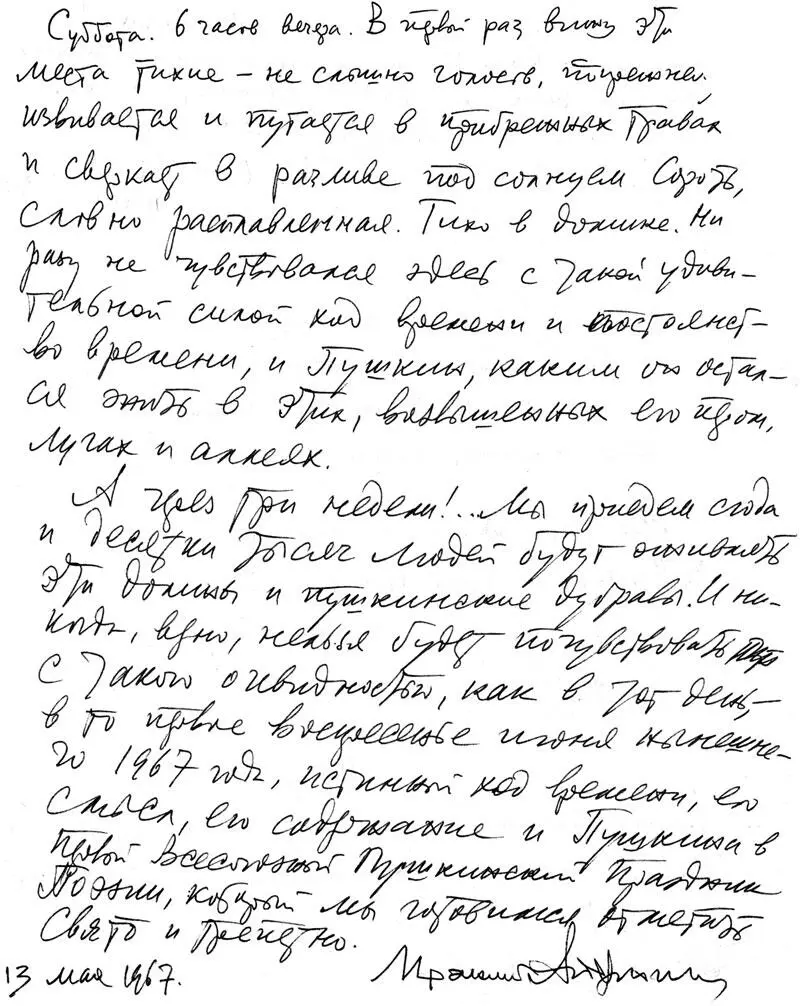 Суббота. 6 часов вечера. В первый раз вижу эти
места тихие – не слышно голосов,
извивается и путается в прибрежных травах
и сверкает в разливе под солнцем Сороть,
словно расплавленная. Тихо в долине. Ни
разу не чувствовался здесь с такой удиви-
тельной силой ход времени и постоянст-
во времени, и Пушкин, каким он остал-
ся жить в этих, возвышенных его пером,
лугах и аллеях.
А через три недели!.. Мы приедем сюда
и десятки тысяч людей будут оживлять
эти долины и пушкинские дубравы. И ни-
когда, верно, нельзя будет почувствовать
с такою очевидностью, как в тот день, –
в то первое воскресенье июня нынешне-
го 1967 года, истинный ход времени, его
смысл, его содержание и Пушкина в
первый Всесоюзный Пушкинский Праздник
Поэзии, который мы готовимся отметить
свято и трепетно.
13 мая 1967. Ираклий Андроников